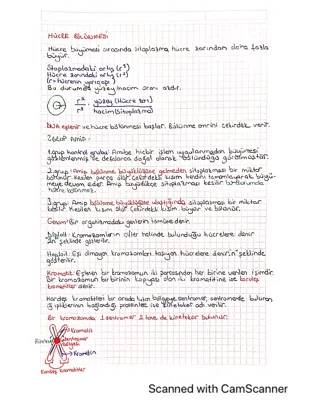 HÜCRE BÖLÜNMESİ
Hücre büyümesi sırasında sitoplazma hücre zarından daha fazla
büyür.
Sitoplazmadaki artış (r³)
Hücre zarındaki artış (r²)
(r = hücrenin yarıçapı)
Bu durumda yüzey hacim oranı azalır.
r² yüzey (Hücre zarı)
r³ hacim (sitoplazma)
DNA eşlenir ve hücre bölünmesi başlar. Bölünme emrini çekirdek verir.
Amip:
1.grup kontrol grubu: Amibe hiçbir işlem uygulanmadan büyümesi
gözlemlenmiş ve defalarca doğal olarak bölündüğü görülmüştür.
2.grup: Amip bölünme büyüklüğüne gelmeden sitoplazması bir miktar
kesilen parça ölür çekirdekli kısım kendini tamamlayarak büyü-
meye devam eder. Amip büyüdükçe sitoplazması kesilir
3.grup: Amip bölünme büyüklüğüne ulaştığında sitoplazması bir miktar
kesilir. Kesilen kısım ölür çekirdekli kısım büyür ve bölünür.
Genom: Bir organizmadaki genlerin tümüne denir.
Diploit: Kromozomların çiftler halinde bulunduğu hücrelere denir
2n şeklinde gösterilir.
Haploit: Eşi olmayan kromozomları taşıyan hücrelere denir. n şeklinde
gösterilir.
Kromatit: Eşlenen bir kromozomun iki parçasından her birine verilen isimdir.
Bir kromozomun birbirinin kopyası olan iki kromatitine ise kardeş
kromatitler denir.
Kardeş kromatitleri bir arada tutan bölgeye sentromer, sentromerde bulunan
iğ ipliklerinin bağlandığı proteinlere ise kinetokor adı verilir.
Bir kromozomda 1 sentromer 2 tane de kinetokor bulunur.
Kromatit
Sentromer
bölgesi
Kromatin
Kardeş kromatitler
Scanned with CamScanner